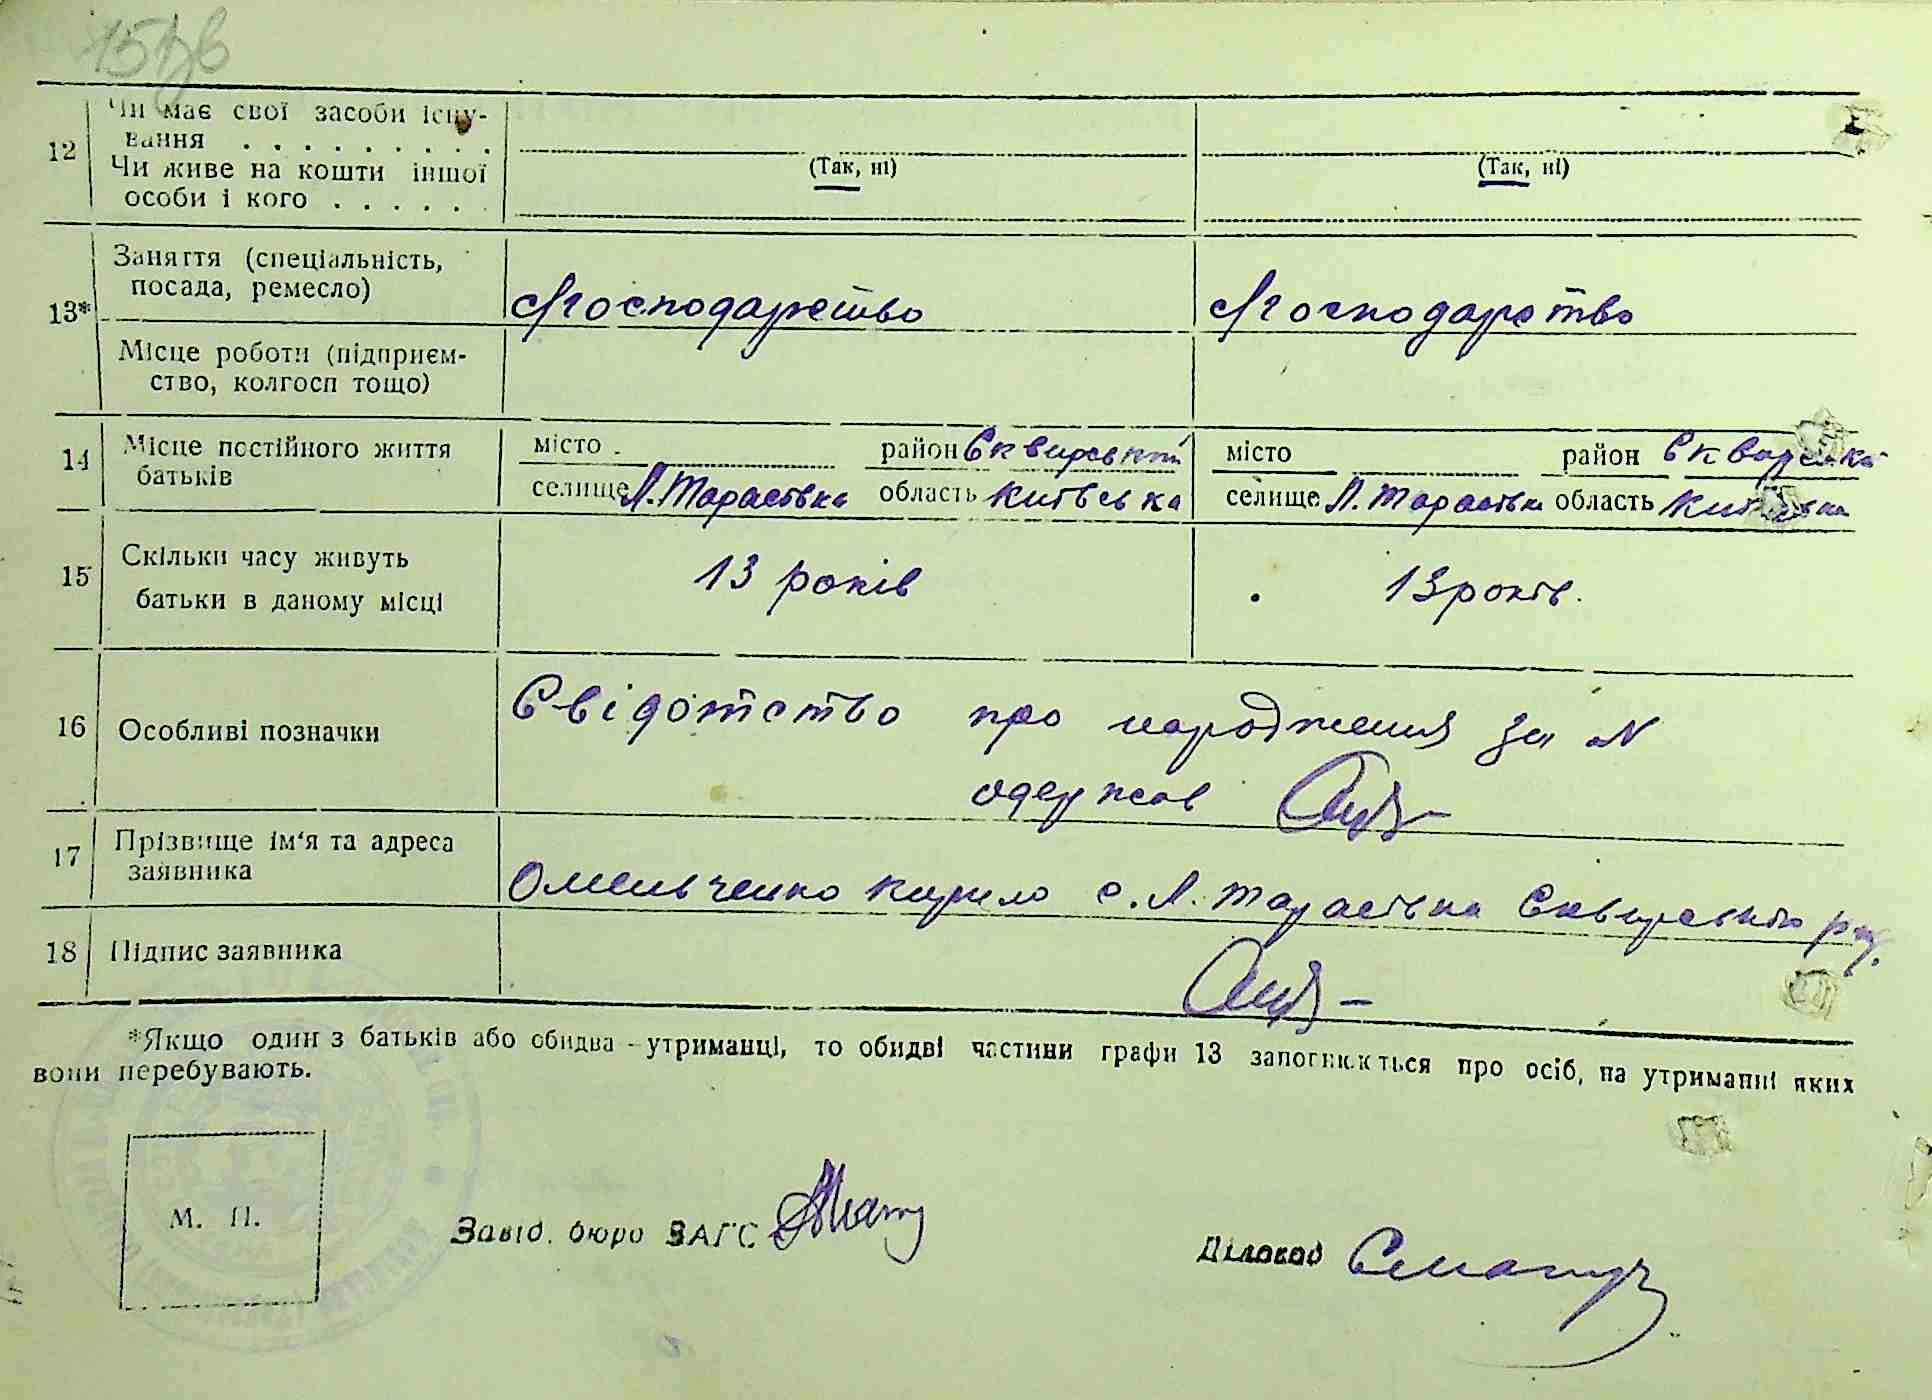 12
Чи має свої засоби існу-
вання . . . . . . . . .
Чи живе на кошти іншої
особи і кого . . . . . .
(Так, ні)
(Так, ні)
13*
Заняття (спеціальність,
посада, ремесло)
господарство
господарство
Місце роботи (підприєм-
ство, колгосп тощо)
14
Місце постійного життя
батьків
місто район Сквирський
селище Л. Тарасівка область Київська
місто район
селище Л. Тарасівка область Київська
15
Скільки часу живуть
батьки в даному місці
13 років
13 років.
16
Особливі позначки
Свідотство про народження за N
одержав
17
Прізвище ім'я та адреса
заявника
Омельченко Кирило с. Л. Тарасівка Сквирського рну.
18
Підпис заявника
*Якщо один з батьків або обидва - утриманці, то обидві частини графи 13 заповнюються про осіб, на утриманні яких
вони перебувають.
М. П.
Завід. бюро ЗАГС
Діловод